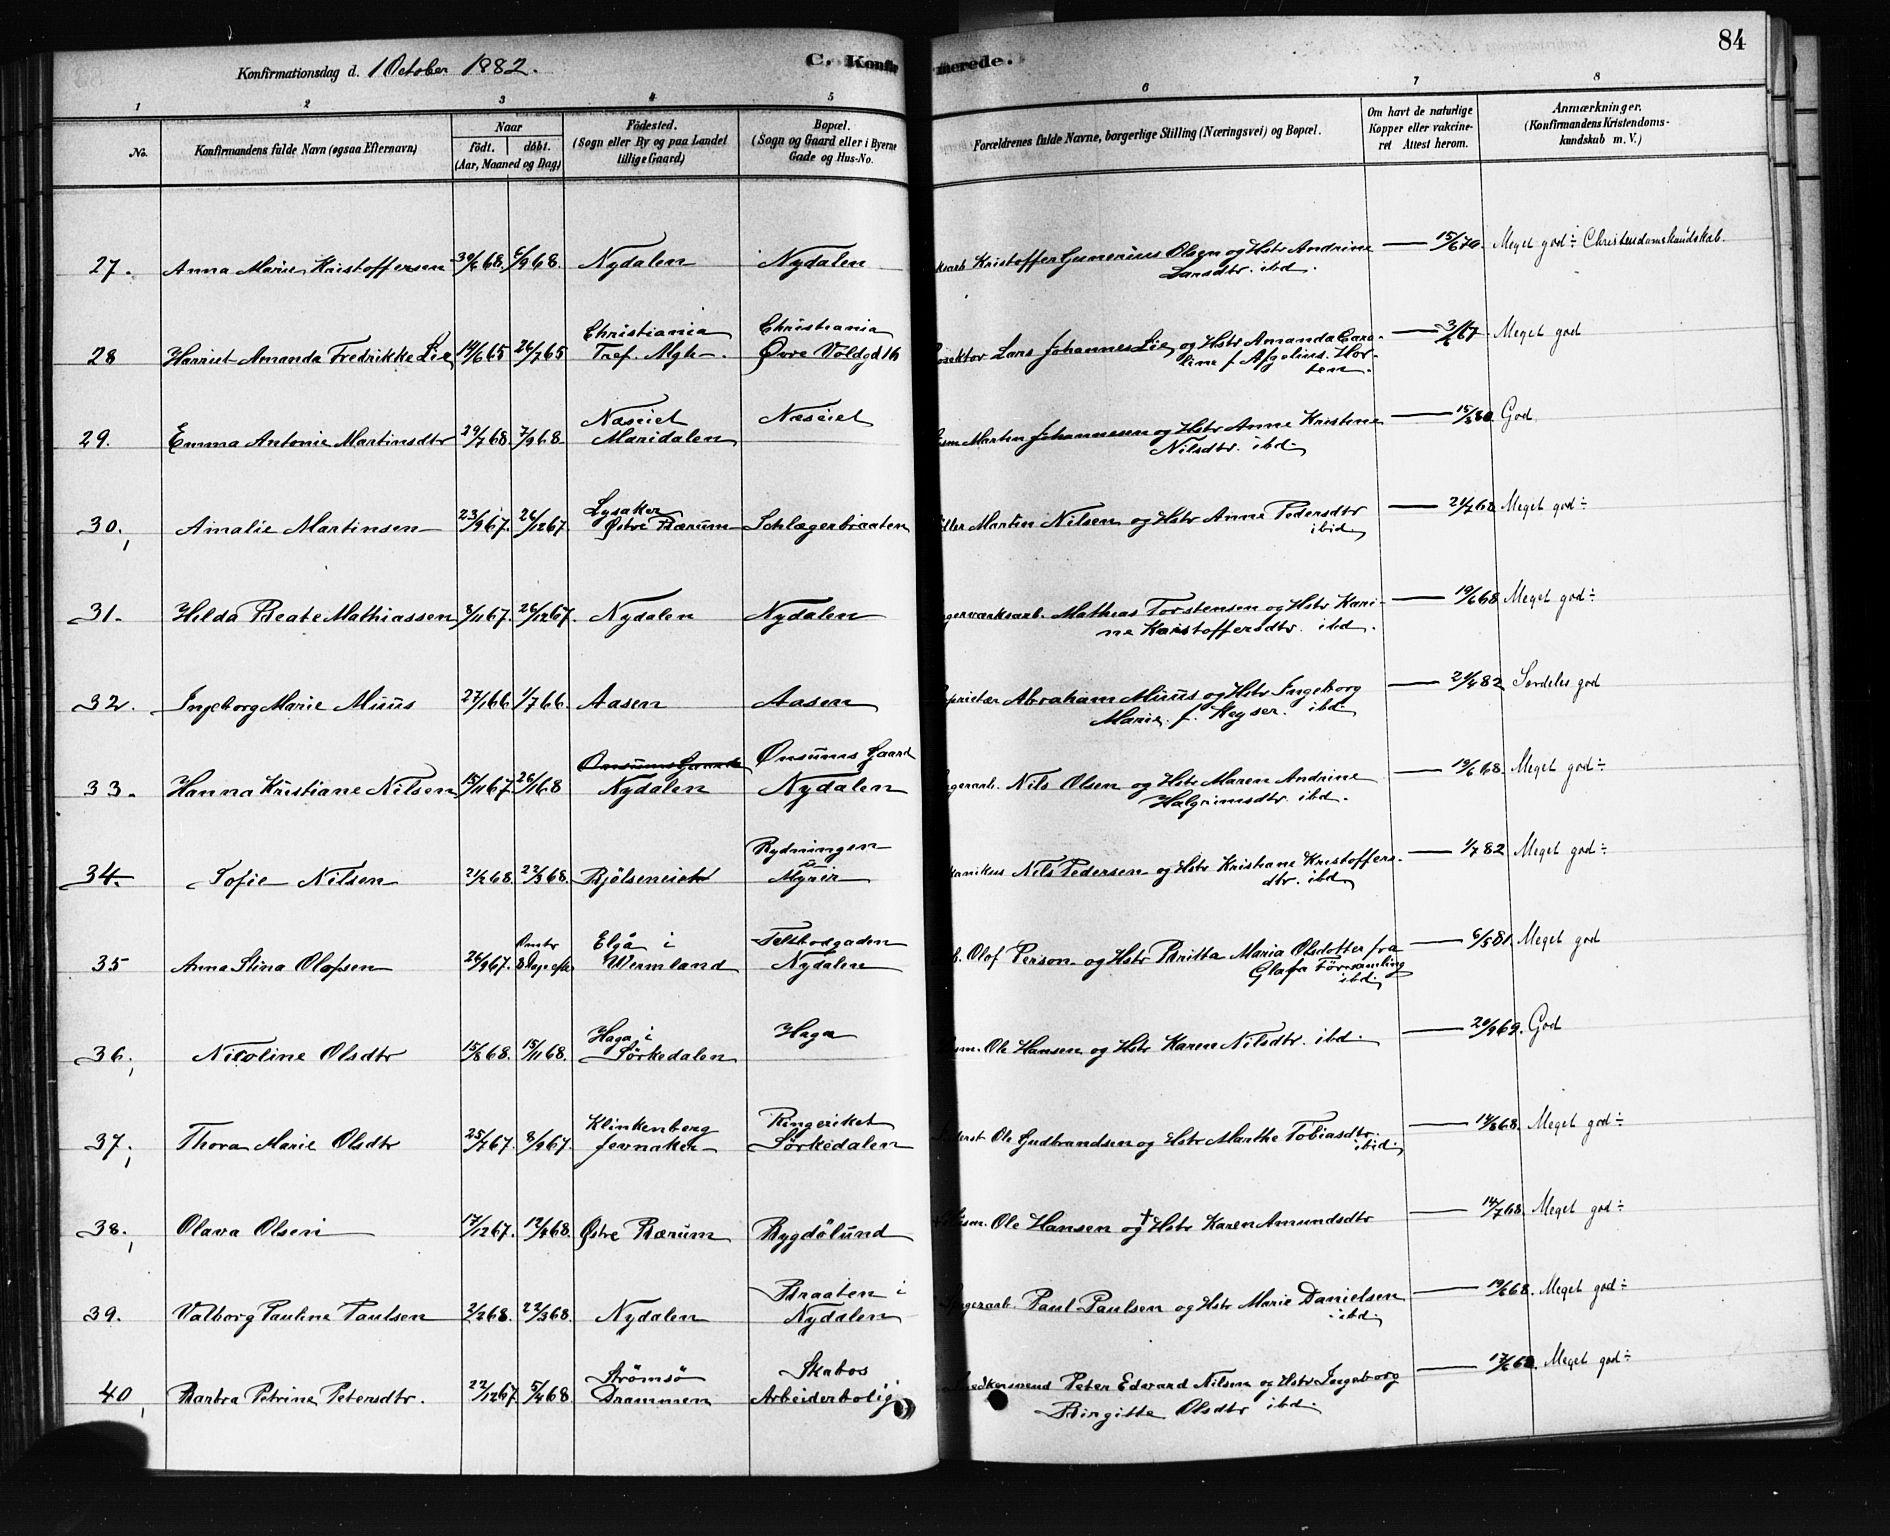 84
Konfirmationsdag d. 1 October 1882.
C. Konfir merede.
1 2 3 4 5 6 7 8
No. Konfirmandens fulde Navn (ogsaa Efternavn) Naar født. døbt. (Aar, Maaned og Dag) Fødested. (Sogn eller By og paa Landet tillige Gaard) Bopæl. (Sogn og Gaard eller i Byerne Gade og Hus-No. Forældrenes fulde Navne, borgerlige Stilling (Næringsvei) og Bopæl. Om havt de naturlige Kopper eller vakcineret Attest herom. Anmærkninger. (Konfirmandens Kristendomskundskab m. V.)
27. Anna Marie Kristoffersen 30/6 68. 6/9 68. Nydalen Nydalen Kristoffer Gunerius Olsen og Hstr Andrine — 15/6 70. Meget god ÷ Christendomskundskab.
Larsdtr. ibd.
Christiania Christiania
28 Harriet Amanda Fredrikke Lie 14/6 65 26/7 65 Tref. Mgh. Øvre Voldgd 16 Lars Johannes Lie og Hstr Amanda Caro- — 3/6 67 Meget god
line f. Afzelius. Hor-
ten.
Næseiet Næseiet
29. Emma Antonie Martinsdtr 29/7 68. 7/9 68. Maridalen Martin Johannesen og Hstr Anne Kristine — 15/5 80 God
Nilsdtr. ibd.
Lysaker
30. Amalie Martinsen 23/9 67. 26/12 67. Østre Bærum Schlægerbraaten Martin Nilsen og Hstr Anne Pedersdtr — 21/7 68 Meget god ÷
ibid
31. Hilda Beate Mathiassen 8/11 67. 26/12 67. Nydalen Nydalen Mathias Torstensen og Hstr Kari- — 19/6 68 Meget god ÷
ne Kristoffersdtr. ibd.
32. Ingeborg Marie Muus 27/1 66 1/7 66. Aasen Aasen Abraham Muus og Hstr Ingeborg — 21/4 82 Særdeles god
Marie f. Heyser. ibd
Ønsums Gaard
33. Hanna Kristiane Nilsen 15/11 67. 26/1 68 Nydalen Nydalen Nils Olsen og Hstr Maren Andrine — 19/6 68. Meget god ÷
Halgrimsdtr ibd.
Rydningen
34. Sofie Nilsen 2/2 68. 22/3 68. Bjølseneiet Myrer Nils Pedersen og Hstr Kristiane Kristoffers- — 1/7 82 Meget god ÷
dtr. ibd
Elgå i
35 Anna Stina Olofsen 26/9 67. Wermland Nydalen Olof Person og Hstr Britta Maria Olsdotter fra — 6/5 81. Meget god
Glafa Församling
ibd
Haga i Haga
36. Nicoline Olsdtr 15/8 68. 15/11 68. Sørkedalen Ole Hansen og Hstr Karen Nilsdtr. ibd. — 20/9 69. God
Klinkenberg Ringeriket
37. Thora Marie Olsdtr 25/7 67. 8/9 67. Jevnaker Sørkedalen Ole Gudbrandsen og Hstr Marthe Tobiasdtr. — 14/6 68. Meget god ÷
ibid
38. Olava Olsen 17/12 67. Østre Bærum Bygdølund Ole Hansen og † Hstr Karen Amundsdtr — 14/7 68. Meget god ÷
Braaten i
39. Valborg Pauline Paulsen 2/2 68. 22/3 68. Nydalen Nydalen Paul Paulsen og Hstr Marie Danielsen — 19/6 68. Meget god ÷
ibd
Strømsø Skabos
40, Barbra Petrine Petersdtr. 22/12 67. 5/4 68 Drammen Arbeiderbolig Peter Edvard Nilsen og Hstr Ingeborg — 17/6 68. Meget god ÷
Birgitte Olsdtr ibd.